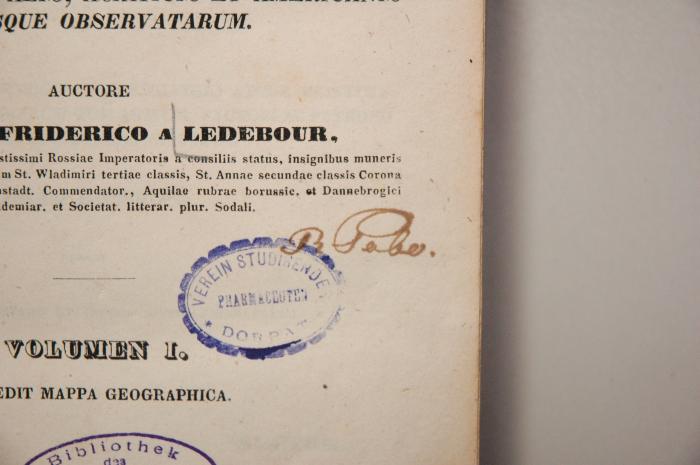 SQUE OBSERVATARUM.
AUCTORE
FRIDERICO A LEDEBOUR,
stissimi Rossiae Imperatoris a consiliis status, insignibus muneris
m St. Wladimiri tertiae classis, St. Annae secundae classis Corona
nstadt. Commendator., Aquilae rubrae borussic. et Dannebrogici
demiar. et Societat. litterar. plur. Sodali.
VEREIN STUDIRENDER
PHARMACEUTEN
* DORPAT
VOLUMEN I.
EDIT MAPPA GEOGRAPHICA.
Bibliothek
des